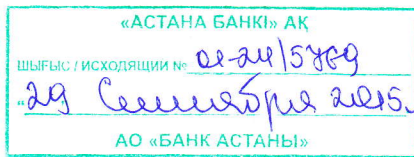 «АСТАНА БАНКІ» АҚ
ШЫҒЫС / ИСХОДЯЩИЙ № 01-24/5769
"29" Сентября 2015
АО «БАНК АСТАНЫ»